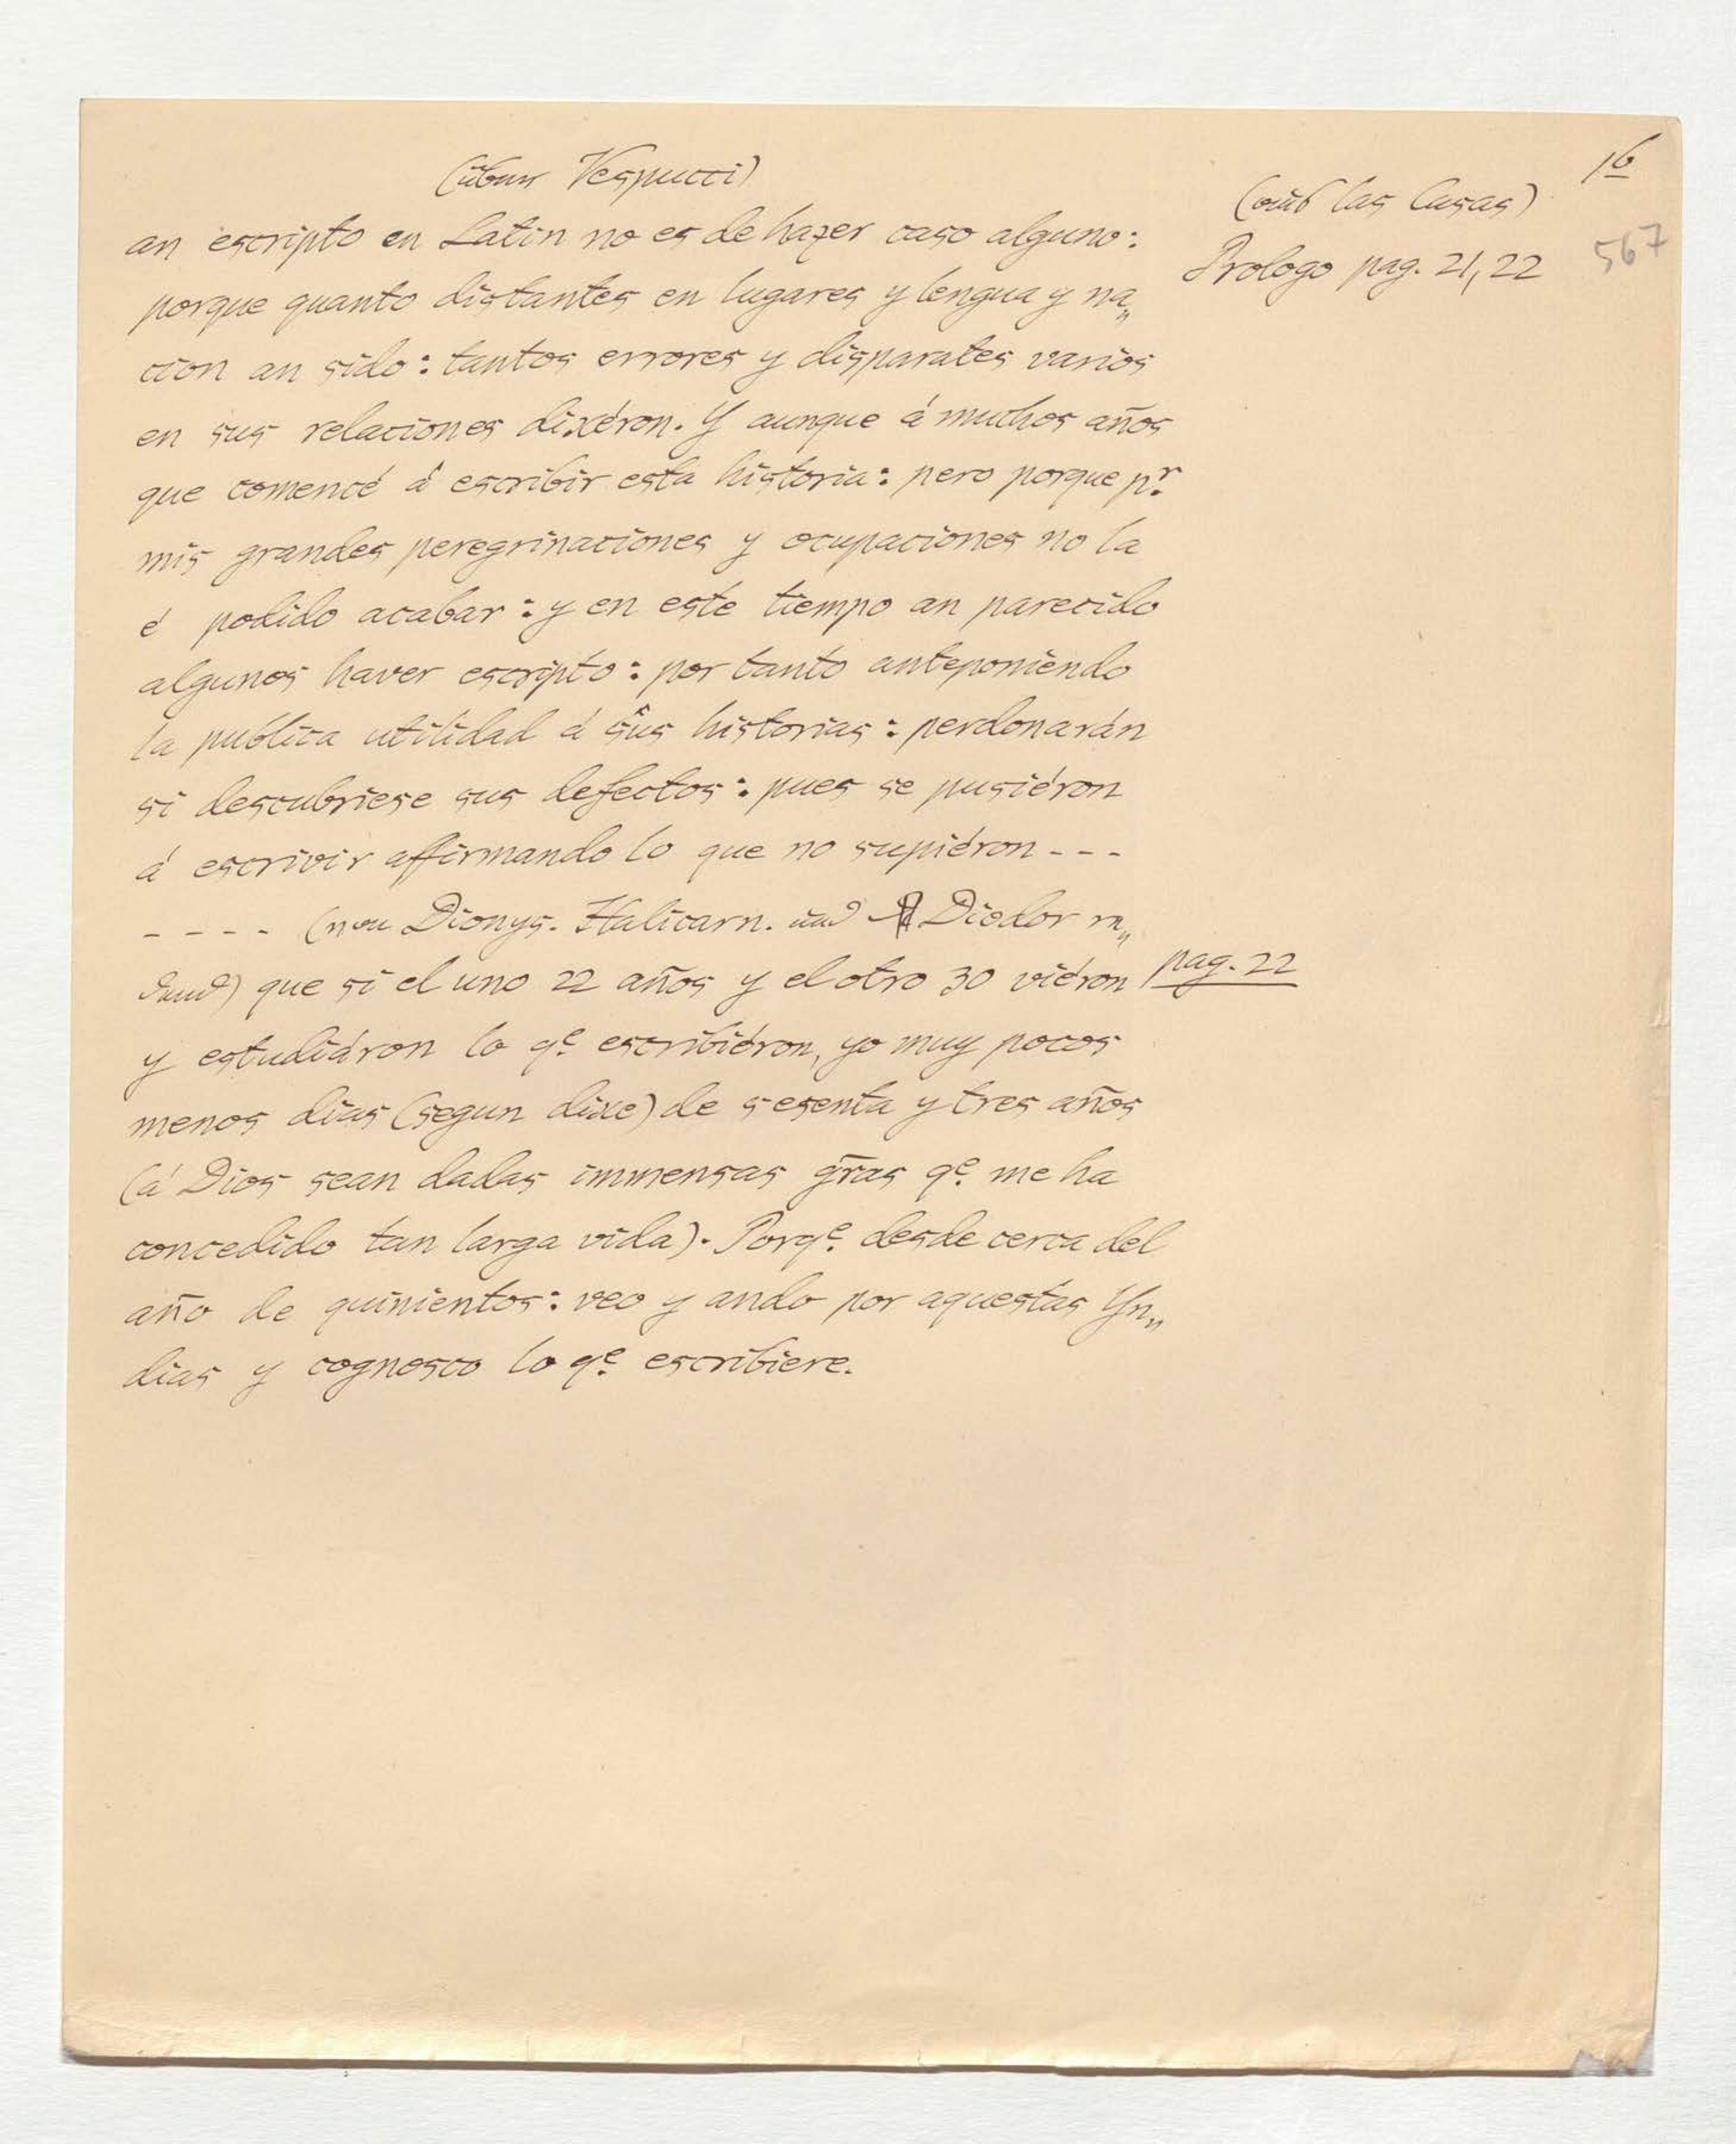 16
(über Vespucci)
(aus las Casas)
567
Prologo pag. 21, 22
an escripto en Latin no es de hazer caso alguno:
porque quanto distantes en lugares y lengua y na„
cion an sido: tantos errores y disparates varios
en sus relaciones dixéron. Y aunque á muchos años
que comencé á escribir esta historia: pero porque pr.
mis grandes peregrinaciones y ocupaciones no la
é podido acabar: y en este tiempo an parecido
algunos haver escripto: por tanto anteponiendo
la publica utilidad á sus historias: perdonarán
si descubriese sus defectos: pues se pusiéron
á escrivir affirmando lo que no supiéron - - -
- - - - (von Dionys. Halicarn. und Diodor re„
dend) que si el uno 22 años y el otro 30 viéron
pag. 22
y estudiáron lo qe. escribiéron, yo muy pocos
menos dias (segun dixe) de sesenta y tres años
(á Dios sean dadas immensas gras qe. me ha
concedido tan larga vida). Porqe. desde cerca del
año de quinientos: veo y ando por aquestas Yn„
dias y cognosco lo qe. escribiere.